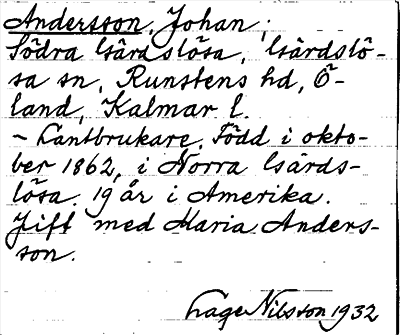 Andersson, Johan;
Södra Gärdslösa, Gärdslö-
sa sn, Runstens hd, Ö-
land, Kalmar l.
- Lantbrukare. Född i okto-
ber 1862, i Norra Gärds-
lösa. 19 år i Amerika.
Gift med Maria Anders-
son.
Lage Nilsson 1932